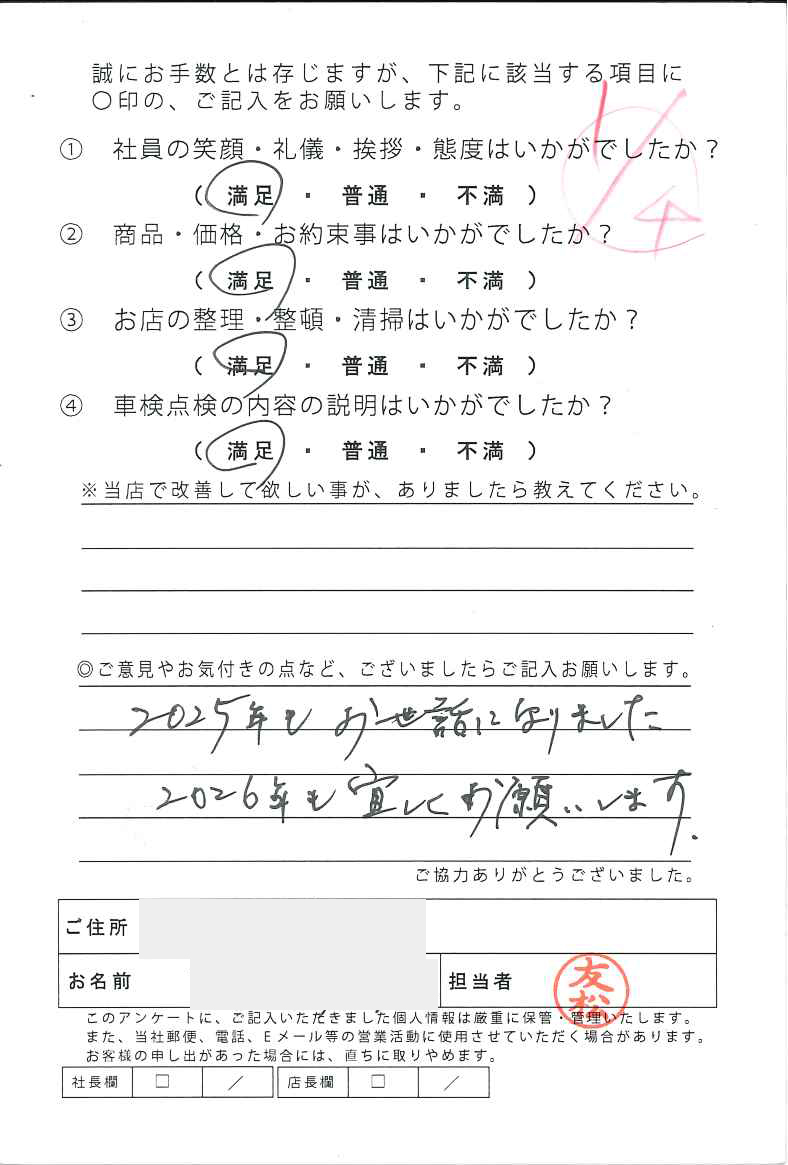 誠にお手数とは存じますが、下記に該当する項目に
〇印の、ご記入をお願いします。
1/4
① 社員の笑顔・礼儀・挨拶・態度はいかがでしたか？
( 満足 ・ 普通 ・ 不満 )
② 商品・価格・お約束事はいかがでしたか？
( 満足 ・ 普通 ・ 不満 )
③ お店の整理・整頓・清掃はいかがでしたか？
( 満足 ・ 普通 ・ 不満 )
④ 車検点検の内容の説明はいかがでしたか？
( 満足 ・ 普通 ・ 不満 )
※当店で改善して欲しい事が、ありましたら教えてください。
◎ご意見やお気付きの点など、ございましたらご記入お願いします。
2025年も お世話になりました
2026年も宜しくお願いします.
ご協力ありがとうございました。
ご住所
お名前
担当者
友松
このアンケートに、ご記入いただきました個人情報は厳重に保管・管理いたします。
また、当社郵便、電話、Eメール等の営業活動に使用させていただく場合があります。
お客様の申し出があった場合には、直ちに取りやめます。
社長欄 □ ／ 店長欄 □ ／